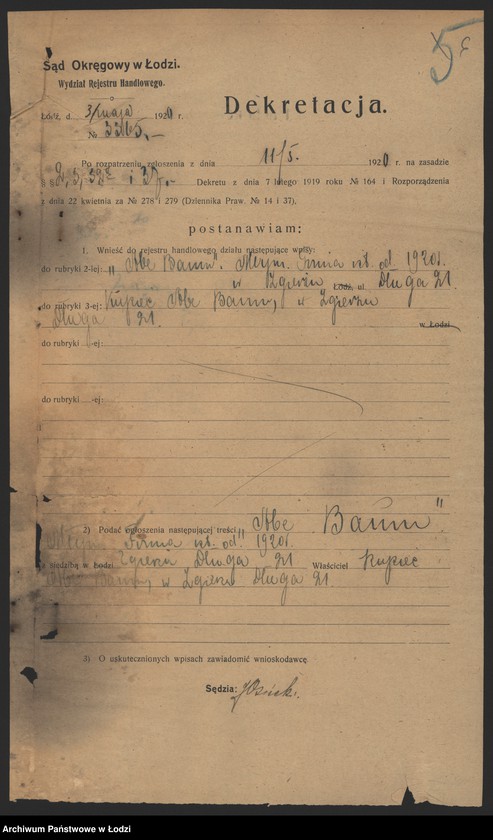 Sąd Okręgowy w Łodzi.
Wydział Rejestru Handlowego.
Łódź, d. 31 maja 1920 r.
№ 3365,—
Dekretacja.
Po rozpatrzeniu zgłoszenia z dnia 11/5. 1920 r. na zasadzie
Dekretu z dnia 7 lutego 1919 roku № 164 i Rozporządzenia
z dnia 22 kwietnia za № 278 i 279 (Dziennika Praw. № 14 i 37),
postanawiam:
1. Wnieść do rejestru handlowego działu następujące wpisy:
do rubryki 2-iej: „Abe Baum". Młyn. Firma ist. od 1920r.
w Zgierzu Łódź, ul. Długa 21.
do rubryki 3-ej: Kupiec Abe Baum, w Zgierzu
Długa 21. w Łodzi
do rubryki -ej:
do rubryki -ej:
2) Podać ogłoszenia następującej treści: „Abe Baum"
Młyn. Firma ist. od 1920r.
siedzibą w Łodzi Zgierzu Długa 21 Właściciel Kupiec
Abe Baum, w Zgierzu Długa 21.
3) O uskutecznionych wpisach zawiadomić wnioskodawcę.
Sędzia:
Archiwum Państwowe w Łodzi